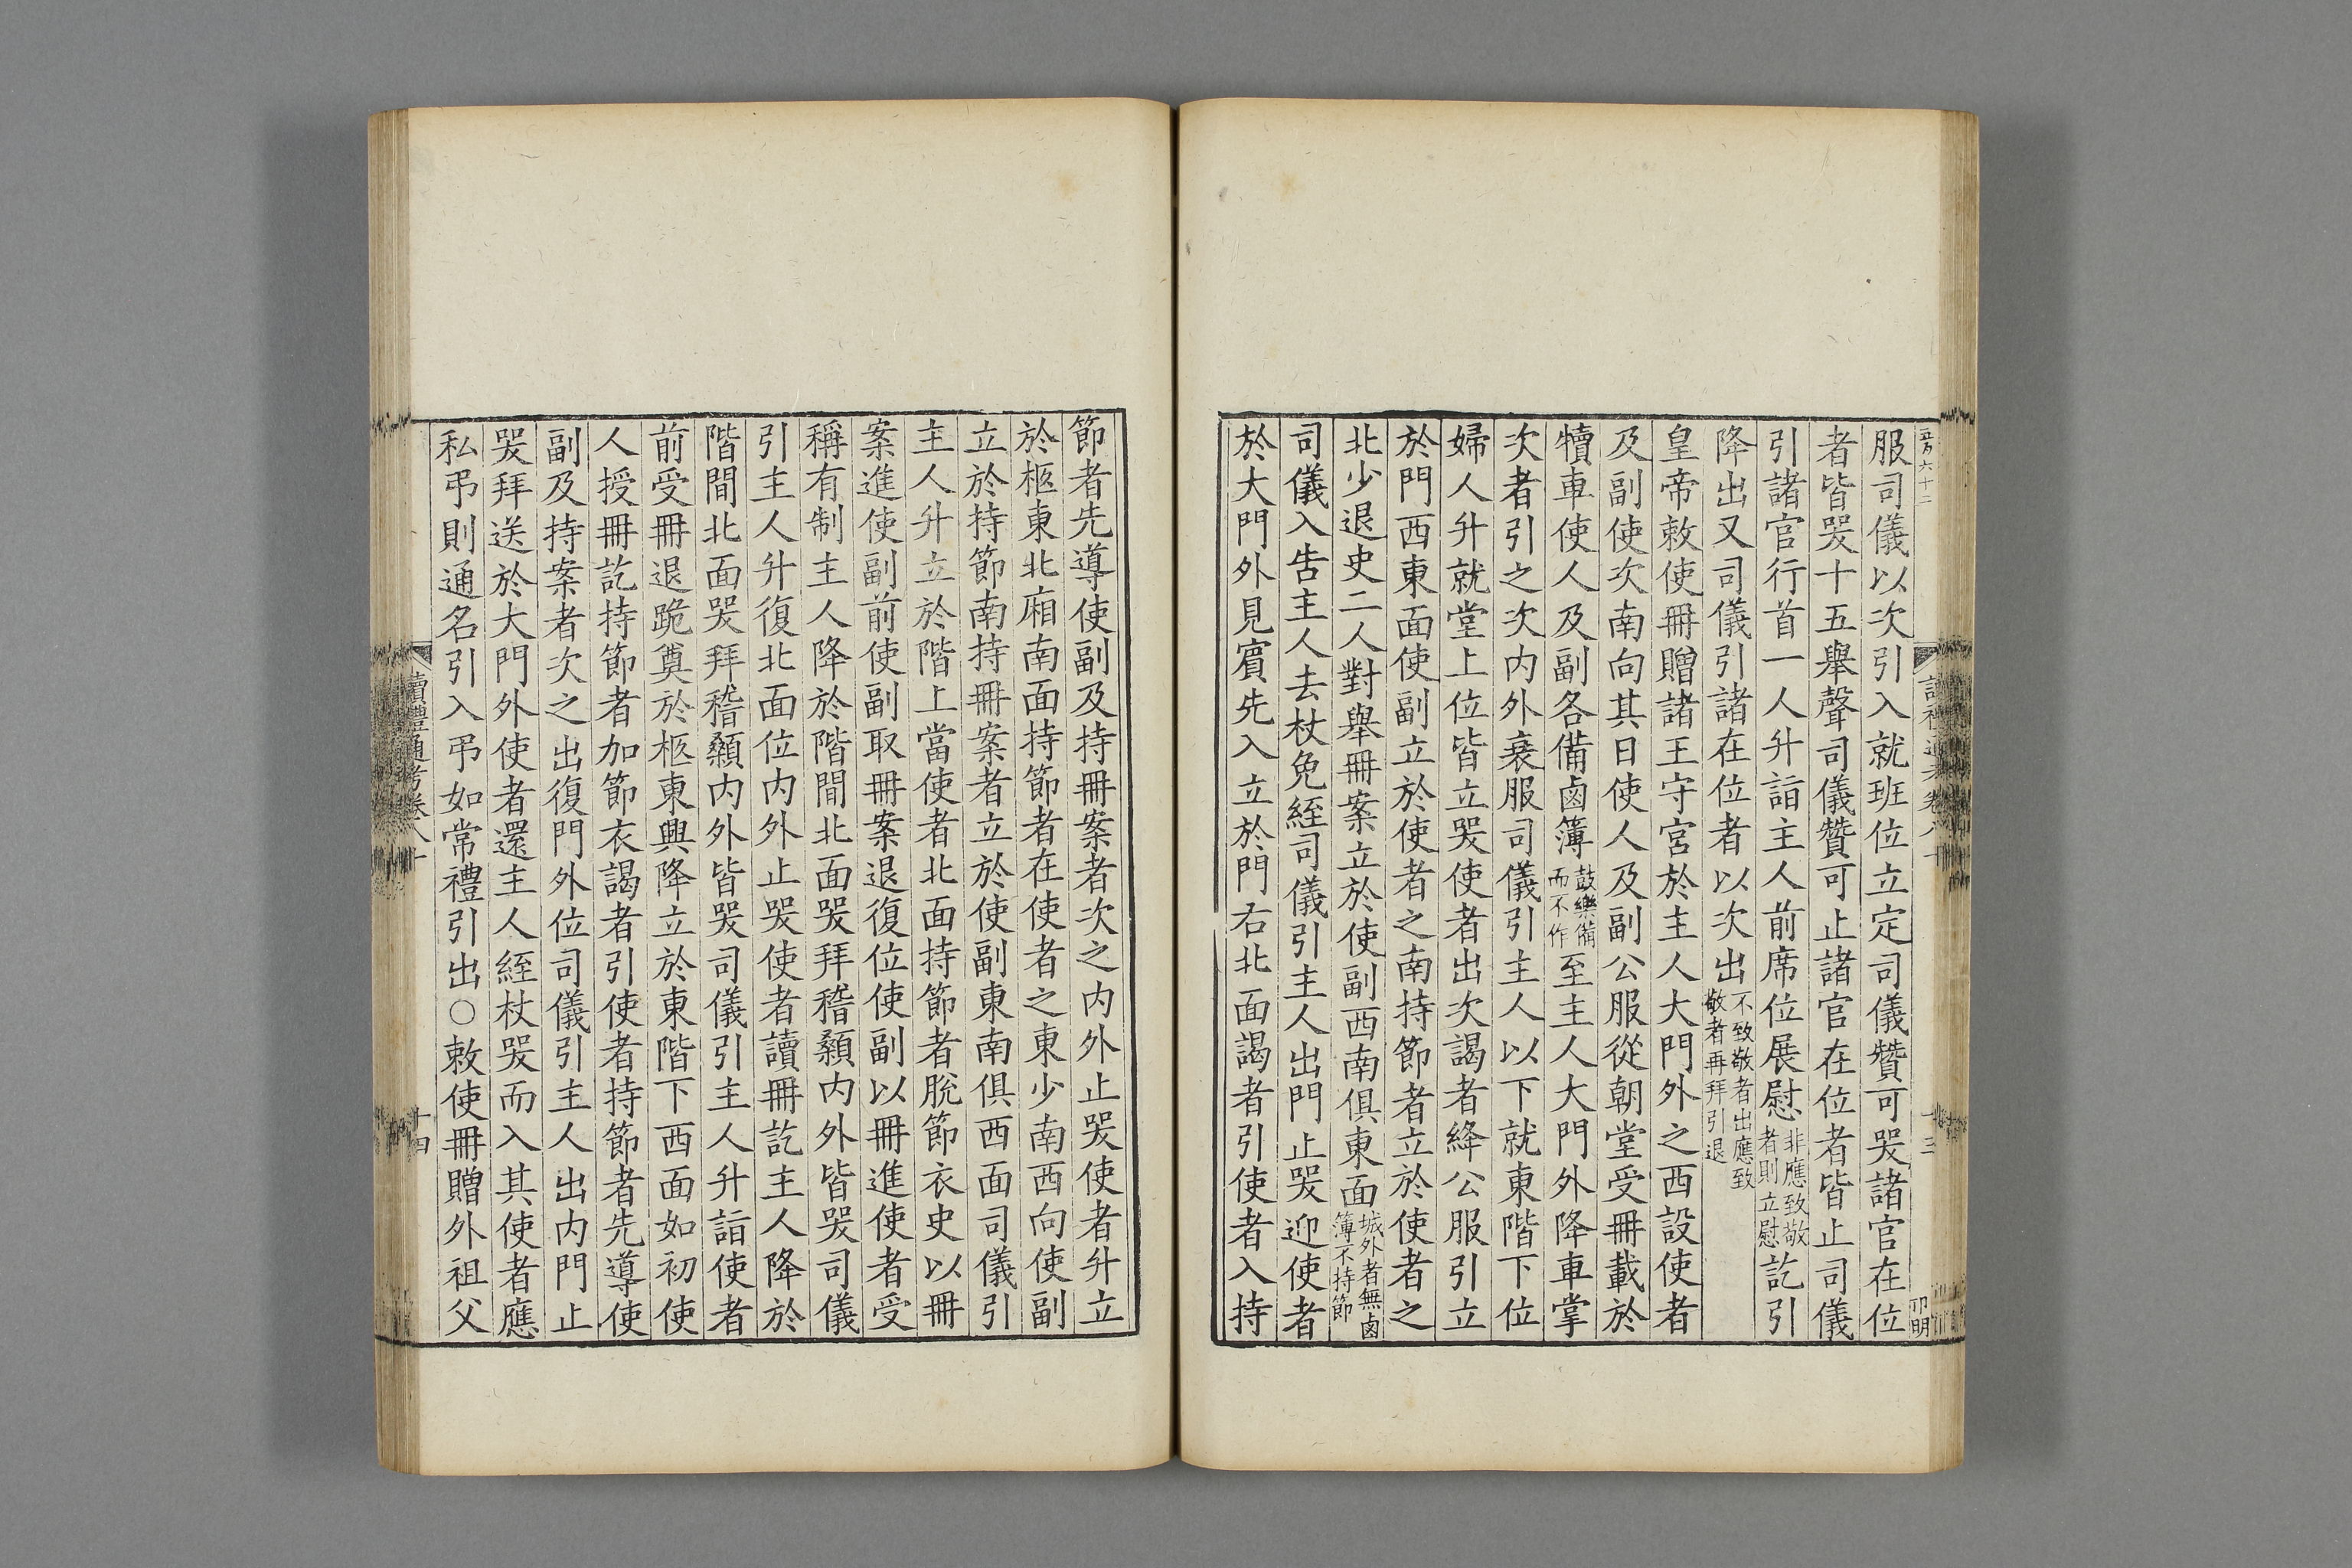 服司儀以次引入就班位立定司儀贊可哭諸官在位
者皆哭十五舉聲司儀贊可止諸官在位者皆止司儀
引諸官行首一人升詣主人前席位展慰非應致敬者則立慰訖引
降出又司儀引諸在位者以次出不致敬者出應致敬者再拜引退
皇帝敕使冊贈諸王守宮於主人大門外之西設使者
及副使次南向其日使人及副公服從朝堂受冊載於
犢車使人及副各備鹵簿鼓樂備而不作至主人大門外降車掌
次者引之次內外衰服司儀引主人以下就東階下位
婦人升就堂上位皆立哭使者出次謁者絳公服引立
於門西東面使副立於使者之南持節者立於使者之
北少退史二人對舉冊案立於使副西南俱東面城外者無鹵簿不持節
司儀入告主人去杖免絰司儀引主人出門止哭迎使者
於大門外見賓先入立於門右北面謁者引使者入持
節者先導使副及持冊案者次之內外止哭使者升立
於柩東北廂南面持節者在使者之東少南西向使副
立於持節南持冊案者立於使副東南俱西面司儀引
主人升立於階上當使者北面持節者脫節衣史以冊
案進使副前使副取冊案退復位使副以冊進使者受
稱有制主人降於階間北面哭拜稽顙內外皆哭司儀
引主人升復北面位內外止哭使者讀冊訖主人降於
階間北面哭拜稽顙內外皆哭司儀引主人升詣使者
前受冊退跪奠於柩東興降立於東階下西面如初使
人授冊訖持節者加節衣謁者引使者持節者先導使
副及持案者次之出復門外位司儀引主人出內門止
哭拜送於大門外使者還主人絰杖哭而入其使者應
私弔則通名引入弔如常禮引出○敕使冊贈外祖父
讀禮通考卷八十
十四